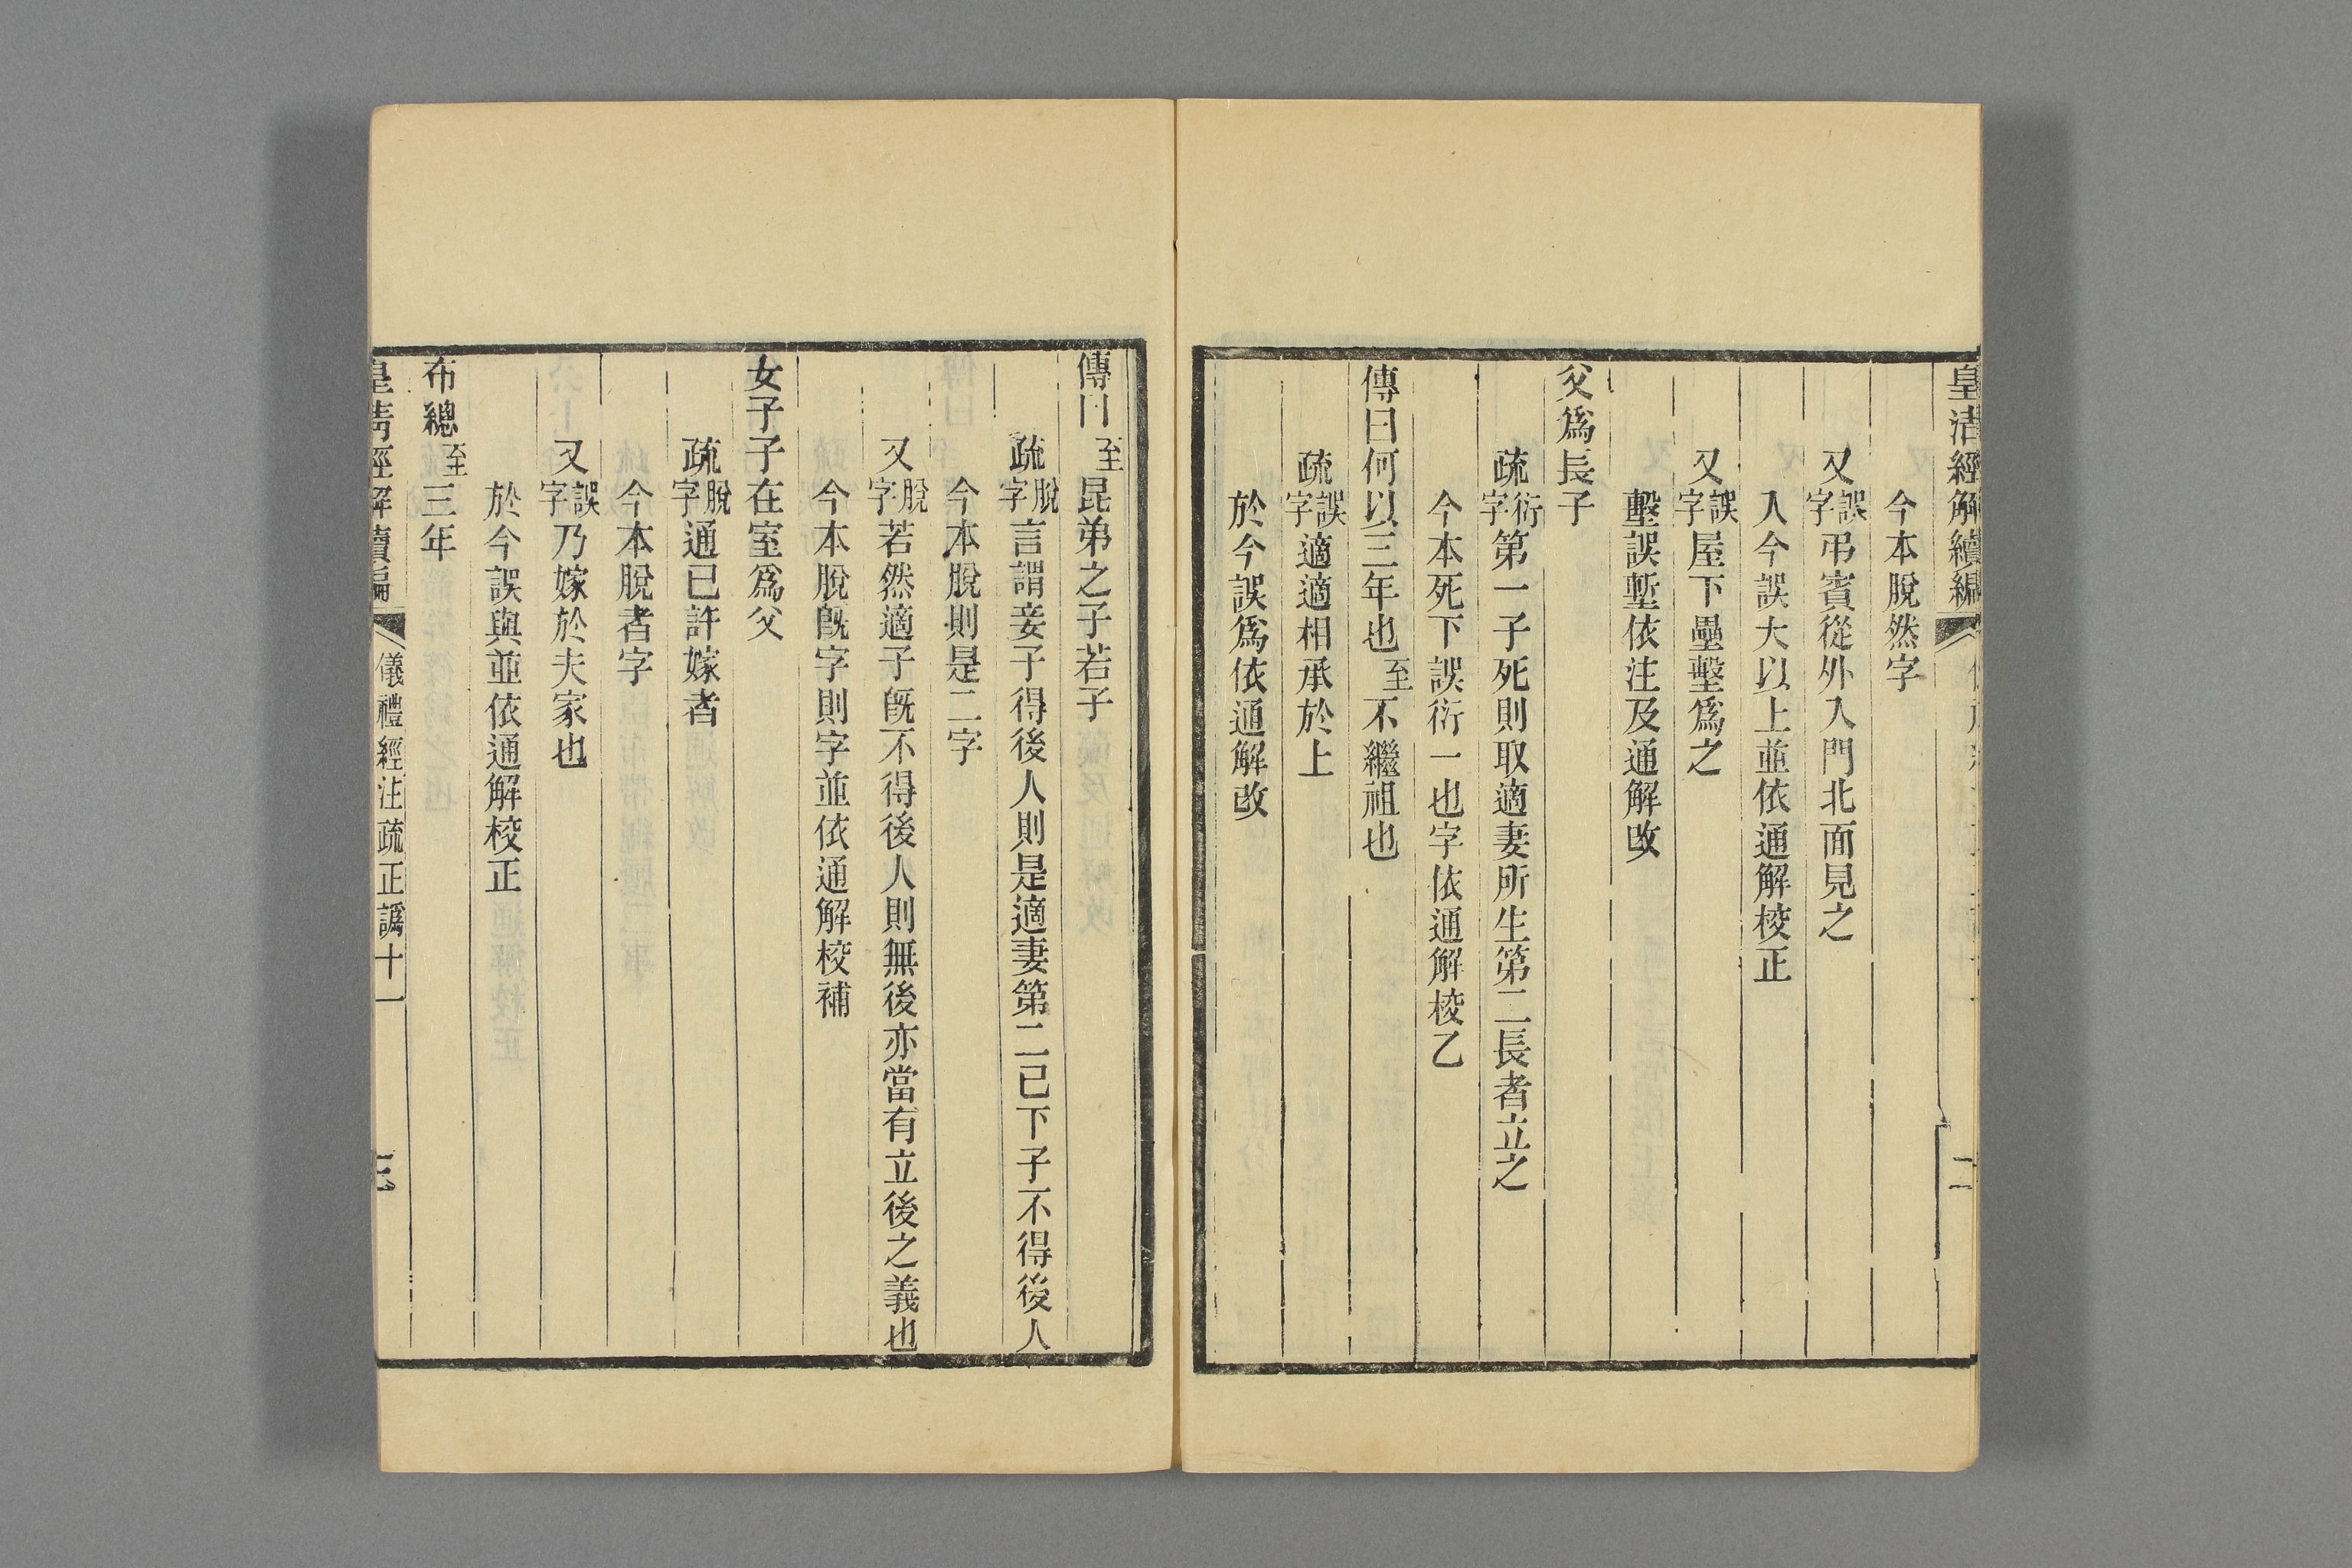 皇清經解續編
二
今本脫然字
又誤字弔賓從外入門北面見之
入今誤大以上並依通解校正
又誤字屋下壘墼爲之
墼誤塹依注及通解改
父爲長子
疏衍字第一子死則取適妻所生第二長者立之
今本死下誤衍一也字依通解校乙
傳曰何以三年也至不繼祖也
疏誤字適適相承於上
於今誤爲依通解改
傳曰至昆弟之子若子
疏脫字言謂妾子得後人則是適妻第二已下子不得後人
今本脫則是二字
又脫字若然適子旣不得後人則無後亦當有立後之義也
今本脫旣字則字並依通解校補
女子子在室爲父
疏脫字通已許嫁者
今本脫者字
又誤字乃嫁於夫家也
於今誤與並依通解校正
布總至三年
皇清經解續編 儀禮經注疏正譌十一